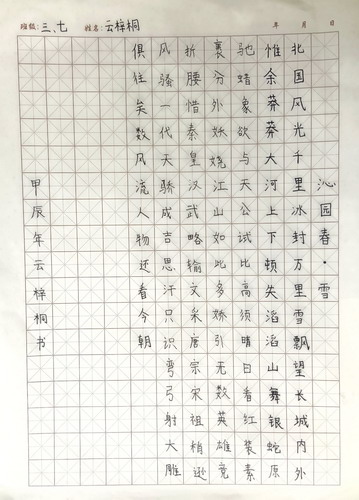 班级: 三、七 姓名: 云梓桐 年 月 日
沁园春·雪
北国风光千里冰封万里雪飘望长城内外
惟余莽莽大河上下顿失滔滔山舞银蛇原
驰蜡象欲与天公试比高须晴日看红装素
裹分外妖娆江山如此多娇引无数英雄竞
折腰惜秦皇汉武略输文采唐宗宋祖稍逊
风骚一代天骄成吉思汗只识弯弓射大雕
俱往矣数风流人物还看今朝
甲辰年云梓桐书